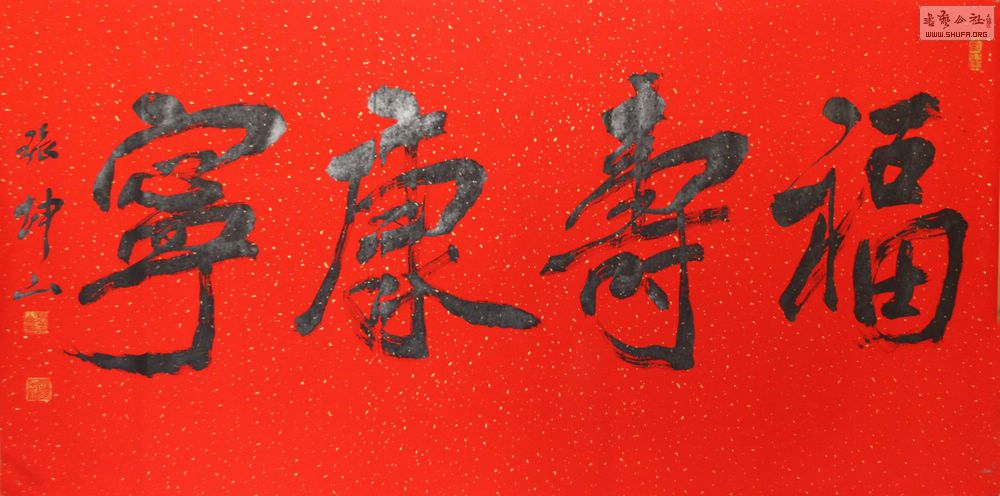 福壽康寧
张坤山
书艺公社
WWW.SHUFA.ORG